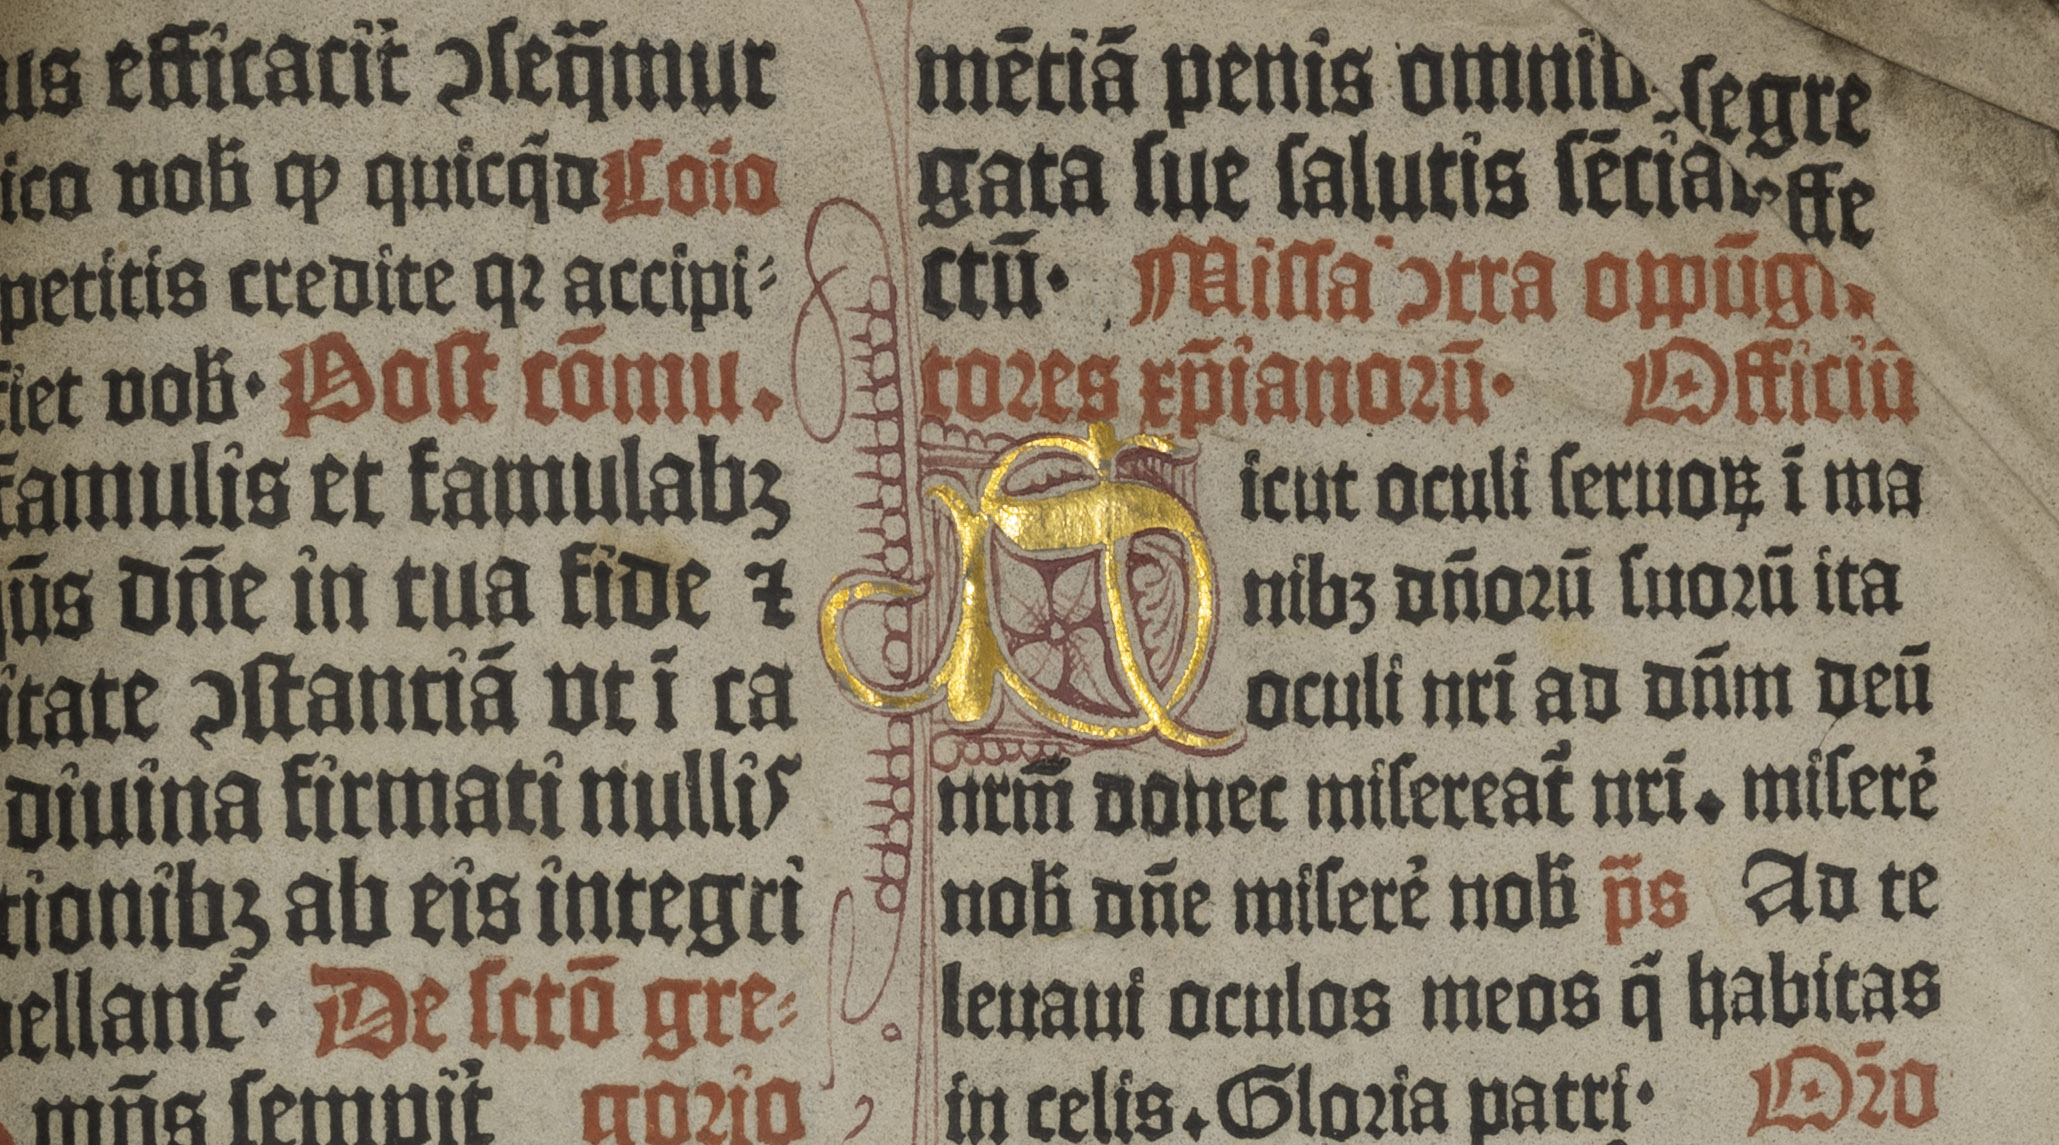 us efficacit̄ ꝯseq̄mur
ico vob̄ ꝙ quicq̄d Cōio
petitis credite qꝛ accipi⸗
fiet vob̄· Post cōmu.
famulis et famulabꝫ
qūs dn̄e in tua fide ⁊
itate ꝯstantiā vt ī ca
diuina firmati nullis
tionibꝫ ab eis integri
uellant̄· De sctō gre⸗
mn̄s sempit̄ gorio
mētiā penis omnib segre
gata sue salutis sēciat effe
ctū· Missa ꝯtra oppūgna
tores xp̄ianorū· Officiū
icut oculi seruoꝝ ī ma
nibꝫ dn̄orū suorū ita
oculi nrī ad dn̄m deū
nrm̄ donec misereat̄ nrī. miserē
nob̄ dn̄e miserē nob̄ p̄s Ad te
leuaui oculos meos q̄ habitas
in celis. Gloria patri· Orō